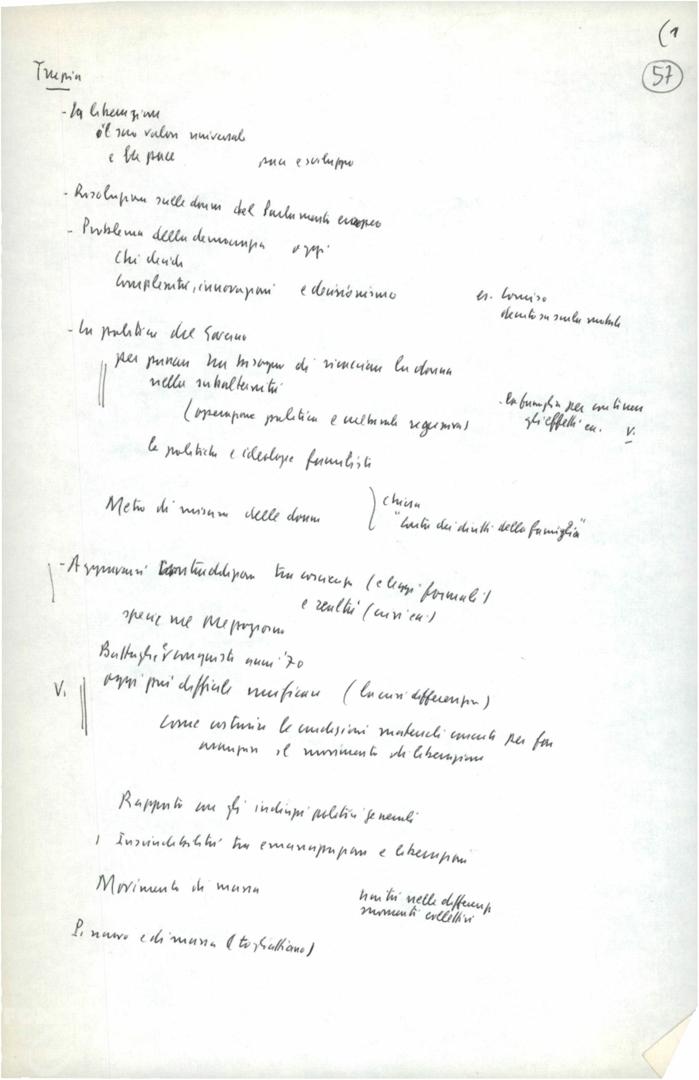 (1
57
Trupia
- La liberazione
il suo valore universale
e la pace pace e sviluppo
- Risoluzione sulle donne del Parlamento europeo
- Problema della democrazia oggi
Chi decide
Complessità, innovazioni e decisionismo es. Comiso
decreto su scala mobile
- La politica del Governo
per passare ha bisogno di ricacciare la donna
nella subalternità
(operazione politica e culturale regressiva) - la famiglia per contenere
gli effetti ec. V.
le politiche e ideologie familiste
Metro di misura delle donne ) chiesa
"Carta dei diritti della famiglia"
- Aggravarsi contraddizione tra coscienza (e leggi formali)
e realtà (crisi ec.)
specie nel Mezzogiorno
Battaglie e conquiste anni '70
V. oggi più difficile unificare (la crisi differenzia)
Come costruire le condizioni materiali concrete per far
avanzare il movimento di liberazione
Rapporto con gli indirizzi politici generali
Inscindibilità tra emancipazione e liberazione
Movimento di massa unità nelle differenze
momenti collettivi
P. nuovo e di massa (togliattiano)